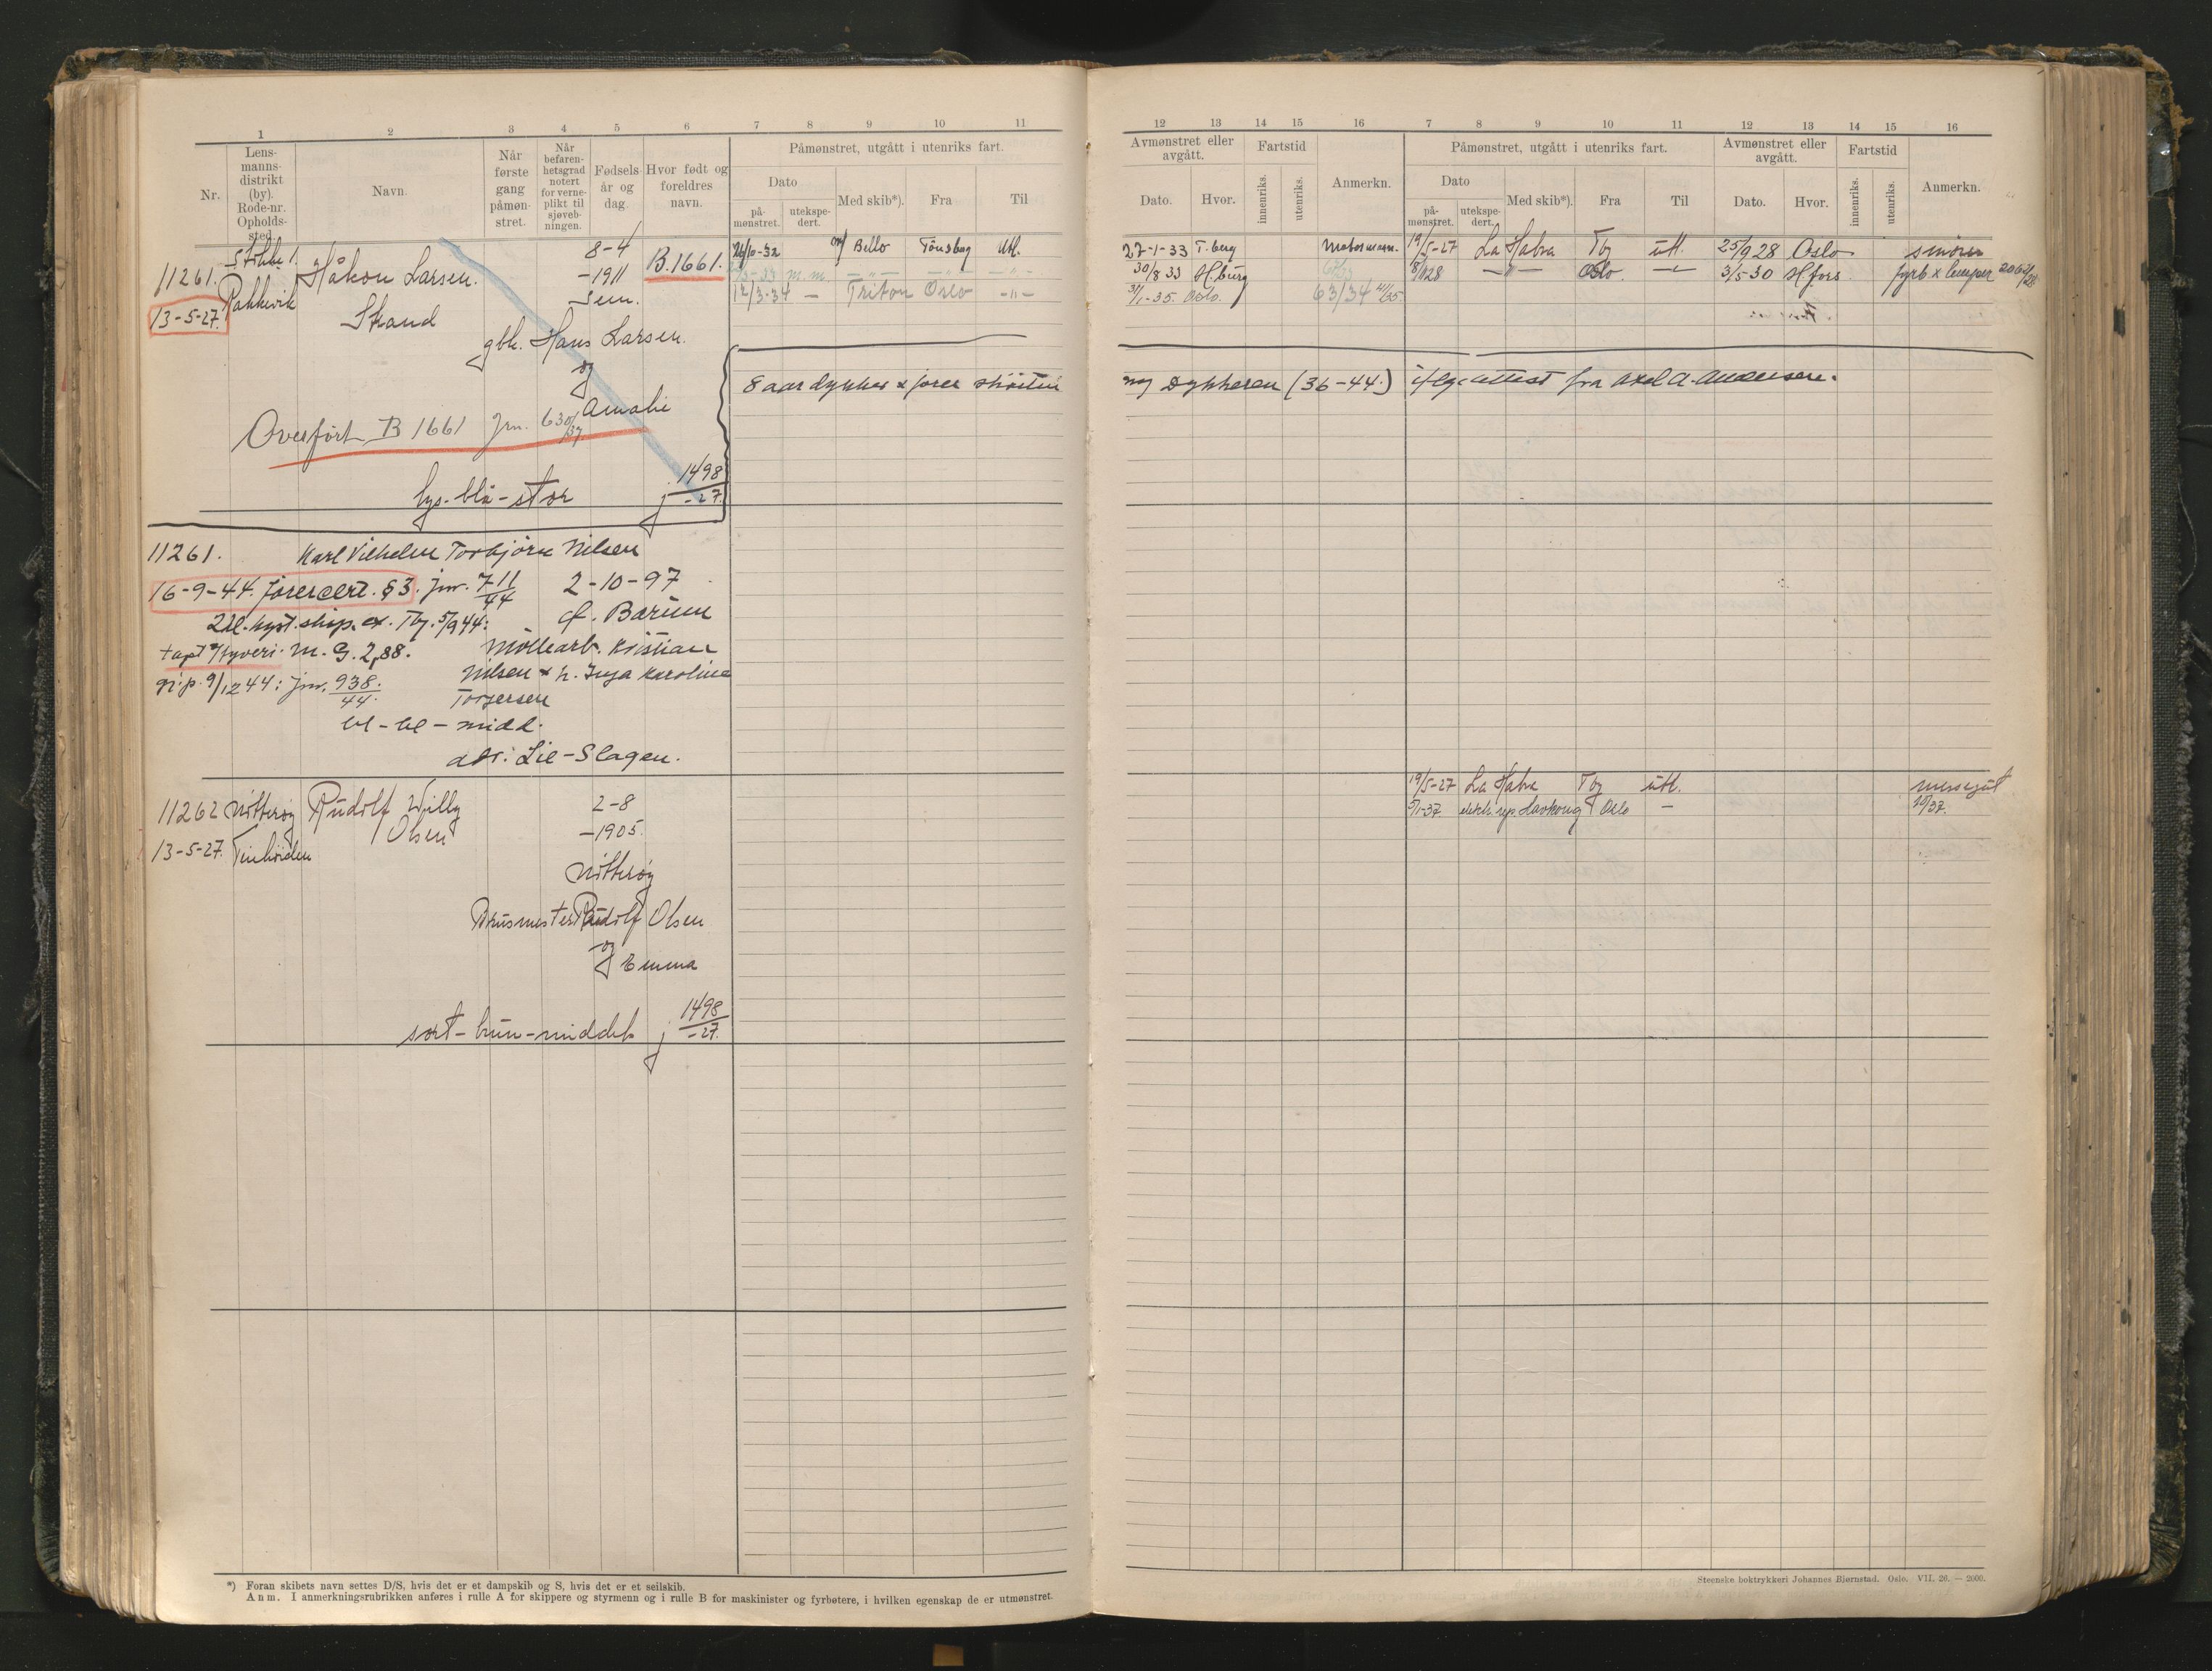 1 2 3 4 5 6 7 8 9 10 11
Nr.
Lens-
manns-
distrikt
(by).
Rode-nr.
Opholds-
sted.
Navn.
Når
første
gang
påmøn-
stret.
Når
befaren-
hetsgrad
notert
for verne-
plikt til
sjøveb-
ningen.
Fødsels-
år og
dag.
Hvor født og
foreldres
navn.
Påmønstret, utgått i utenriks fart.
Dato
på-
mønstret.
utekspe-
dert.
Med skib*).
Fra
Til
Stokke 1.
11261. Håkon Larsen. 8-4
-1911 B.1661.
Rakkevik Sem.
13-5-27. Skand
gbk. Hans Larsen.
og
Amalie
Overført B 1661 Jrn. 630/37
lys-blå-stor j 1498/-27.
24/10-32 m/ Bello Tönsbog Utl.
/5-33 m.m. -"- -"- -"-
12/3-34 - Triton Oslo -"-
8 aar dykker & fører skøiten
11261. Karl Vilhelm Torbjørn Nilsen
16-9-44. førercert. §3. jnr. 711/44 2-10-97
f. Bærum
Møllearb. Kristian
Nilsen & h. Inga Karoline
Torgersen
tapt v/tyveri. M. G. 2,88.
9/12 44: jnr. 938./44.
bl-bl-midd.
adr: Lie-Slagen.
11262 Nötteröy Rudolf Willy 2-8
Olsen -1905.
13-5-27.
Nötteröy
Rudolf Olsen
og
Emma
sort-brun-middels j 1498/-27.
*) Foran skibets navn settes D/S, hvis det er et dampskib og S, hvis det er et seilskib.
Anm. I anmerkningsrubrikken anføres i rulle A for skippere og styrmenn og i rulle B for maskinister og fyrbøtere, i hvilken egenskap de er utmønstret.
12 13 14 15 16 7 8 9 10 11 12 13 14 15 16
Avmønstret eller
avgått.
Fartstid
Dato.
Hvor.
innenriks.
utenriks.
Anmerkn.
Påmønstret, utgått i utenriks fart.
Dato
på-
mønstret.
utekspe-
dert.
Med skib*).
Fra
Til
Avmønstret eller
avgått.
Fartstid
Dato.
Hvor.
innenriks.
utenriks.
Anmerkn.
27-1-33 T.berg Motormann. 19/5-27 La Habra Tbg utl. 25/9 28 Oslo smörer
30/8 33 H.burg Oslo 3/5-30 H.fors fyrb & lemper
31/1-35. Oslo. 63/34
Dykkeren (36-44.) iflg. attest fra Axel A. Andersen.
19/5-27 La Habra Tbg utl. messegut
5/1-37 Havkong Oslo -
Steenske boktrykkeri Johannes Bjørnstad. Oslo. VII. 26. — 2000.